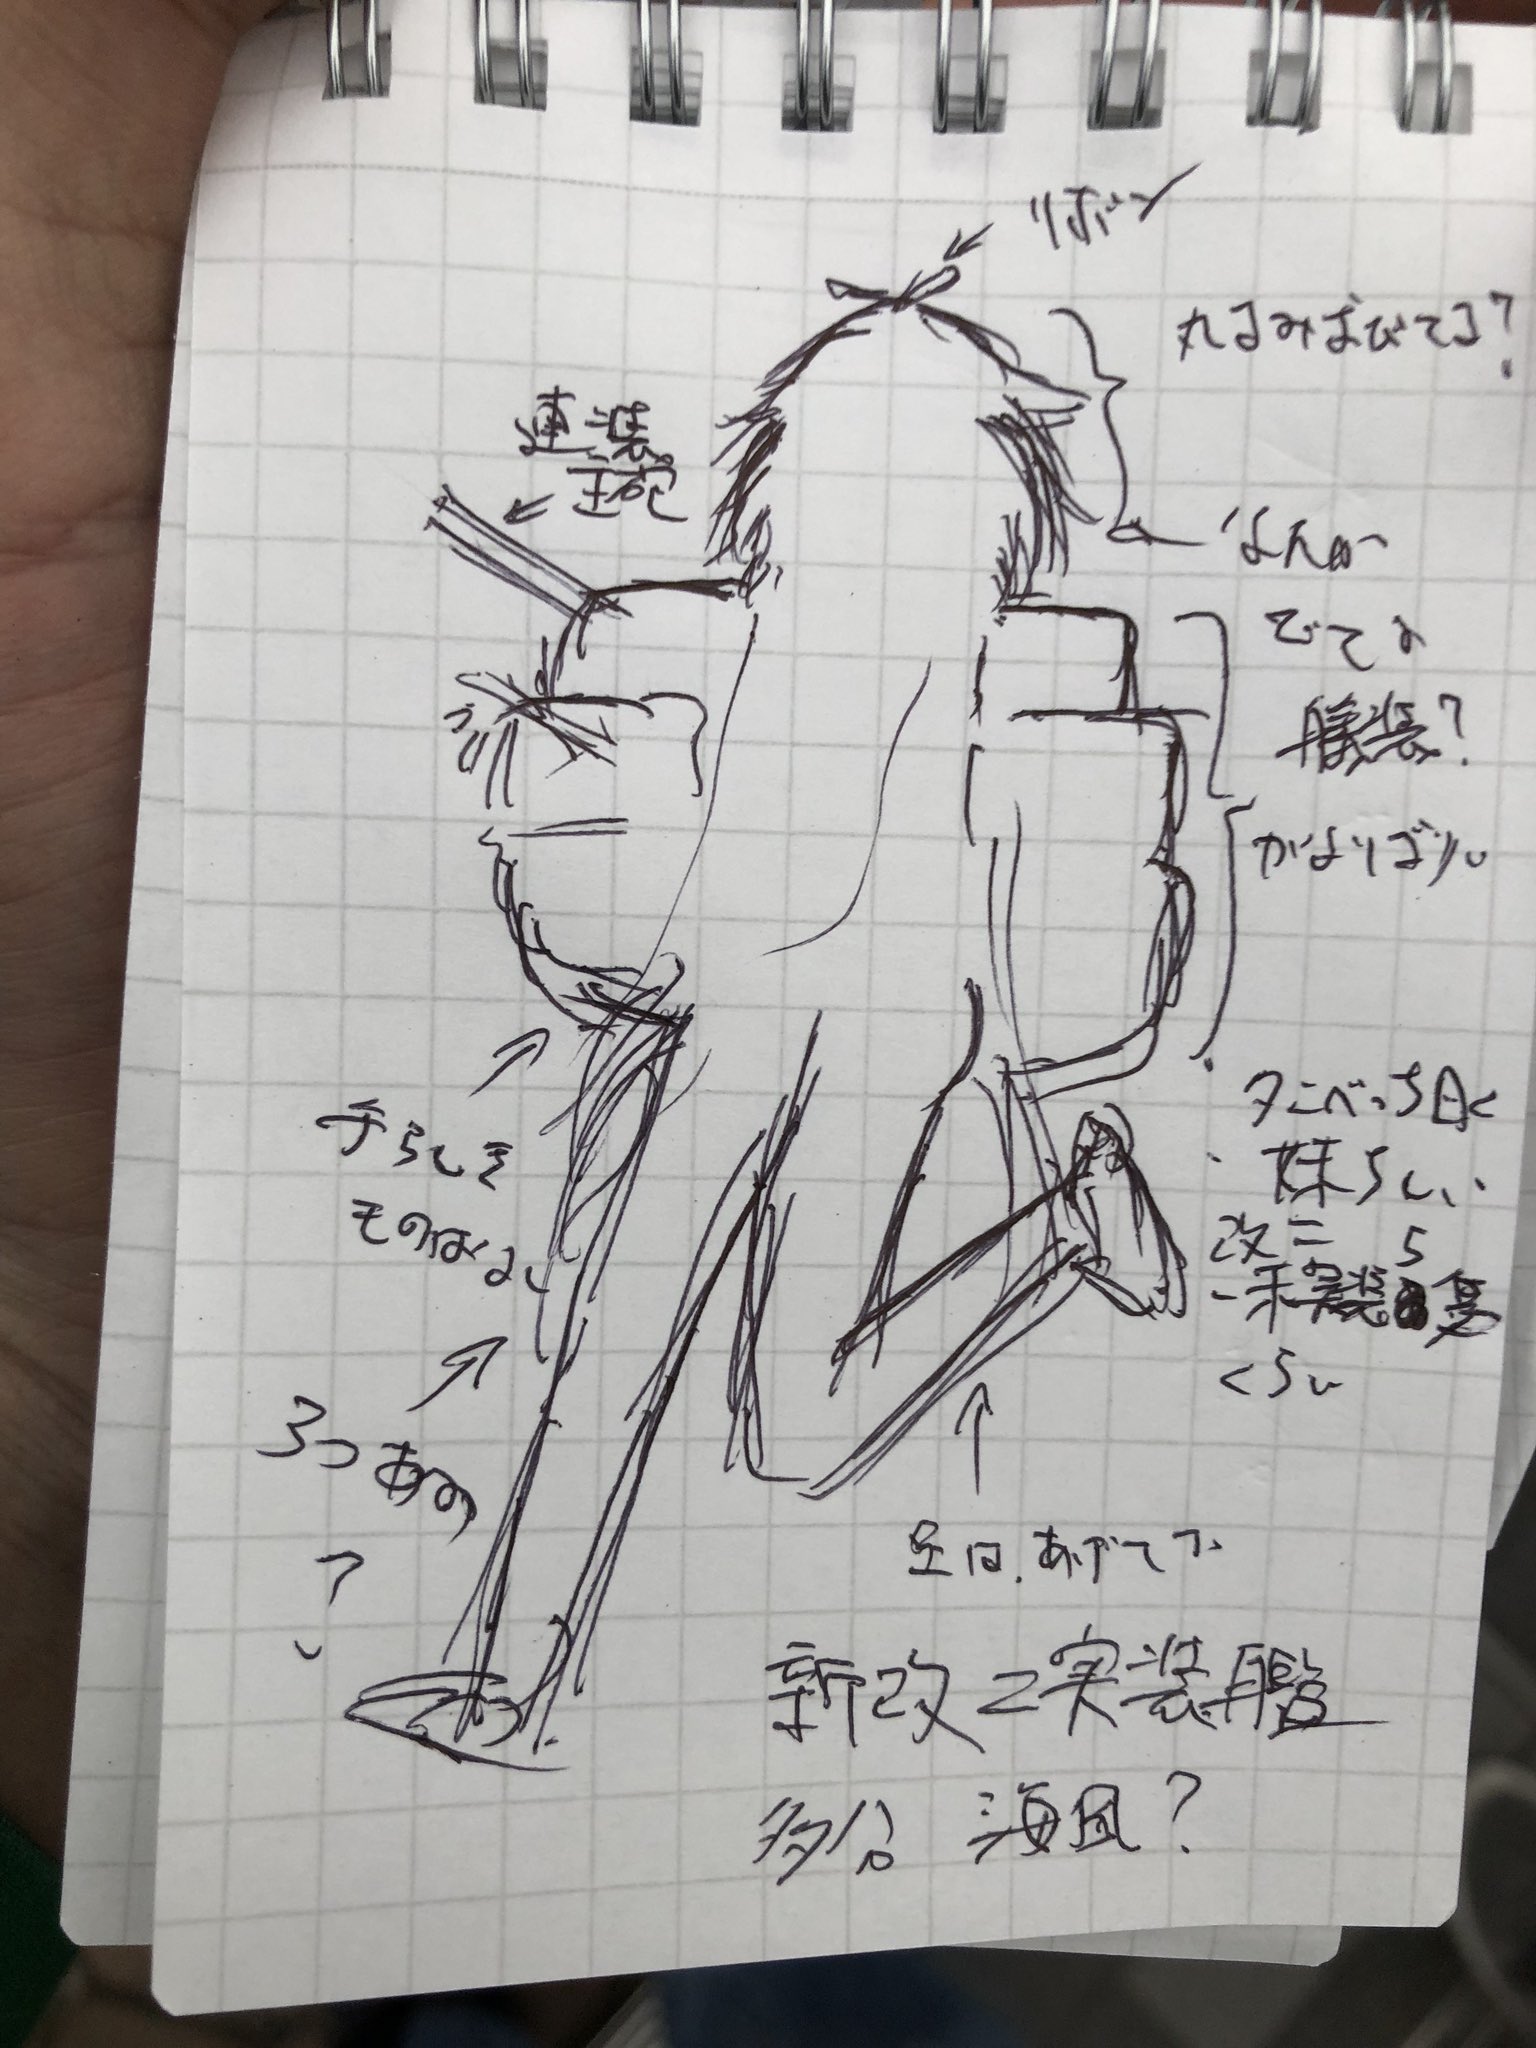 リボン
丸るみおびてる?
連装
主砲
なんか
でてる
艤装?
がよりばり
手らしき
ものなし
タニベっち曰く
・妹らしい
改二
・未実装 
くらい
3つあみ
?
足は、あげてる
新改二実装艦
多分 海風?